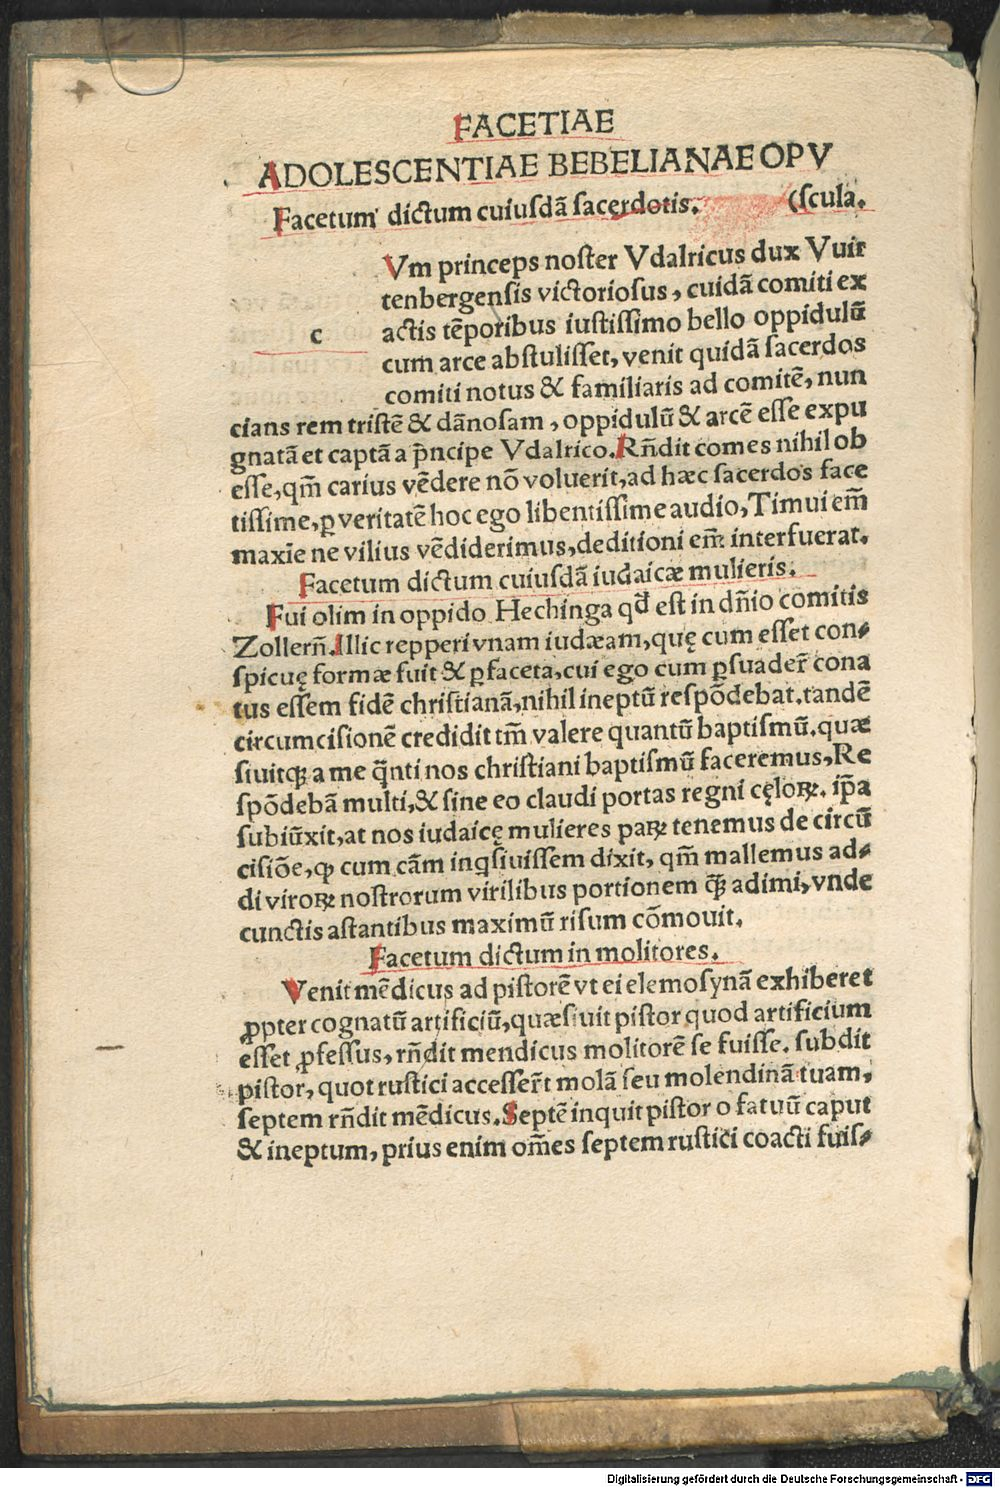 FACETIAE
ADOLESCENTIAE BEBELIANAE OPV
Facetum dictum cuiusdā sacerdotis. (scula.
Vm princeps noster Vdalricus dux Vuir
tenbergensis victoriosus, cuidā comiti ex
c actis tēporibus iustissimo bello oppidulū
cum arce abstulisset, venit quidā sacerdos
comiti notus & familiaris ad comitē, nun
cians rem tristē & dānosam, oppidulū & arcē esse expu
gnatā et captā a p̄ncipe Vdalrico. Rn̄dit comes nihil ob
esse, qm̄ carius vēdere nō voluerit, ad hæc sacerdos face
tissime, ꝑ veritatē hoc ego libentissime audio, Timui em̄
maxīe ne vilius vēdiderimus, deditioni em̄ interfuerat.
Facetum dictum cuiusdā iudaicæ mulieris.
Fui olim in oppido Hechinga qd̄ est in dn̄io comitis
Zollern̄. Illic repperi vnam iudæam, quę cum esset con⸗
spicuę formæ fuit & ꝑfaceta, cui ego cum ꝑsuader̄ cona
tus essem fidē christianā, nihil ineptū respōdebat. tandē
circumcisionē credidit tm̄ valere quantū baptismū. quæ
siuitqꝫ a me q̄nti nos christiani baptismū faceremus, Re
spōdebā multi, & sine eo claudi portas regni cęloꝝ. ip̄a
subiūxit, at nos iudaicę mulieres paꝝ tenemus de circū
cisiōe, ꝙ cum cām inqsiuissem dixit, qm̄ mallemus ad⸗
di viroꝝ nostrorum virilibus portionem q̄ꝫ adimi, vnde
cunctis astantibus maximū risum cōmouit.
Facetum dictum in molitores.
Venit mēdicus ad pistorē vt ei elemosynā exhiberet
ꝓpter cognatū artificiū, quæsiuit pistor quod artificium
esset ꝓfessus, rn̄dit mendicus molitorē se fuisse. subdit
pistor, quot rustici accesser̄t molā seu molendinā tuam,
septem rn̄dit mēdicus. Septē inquit pistor o fatuū caput
& ineptum, prius enim om̄es septem rustici coacti fuis⸗
Digitalisierung gefördert durch die Deutsche Forschungsgemeinschaft - DFG